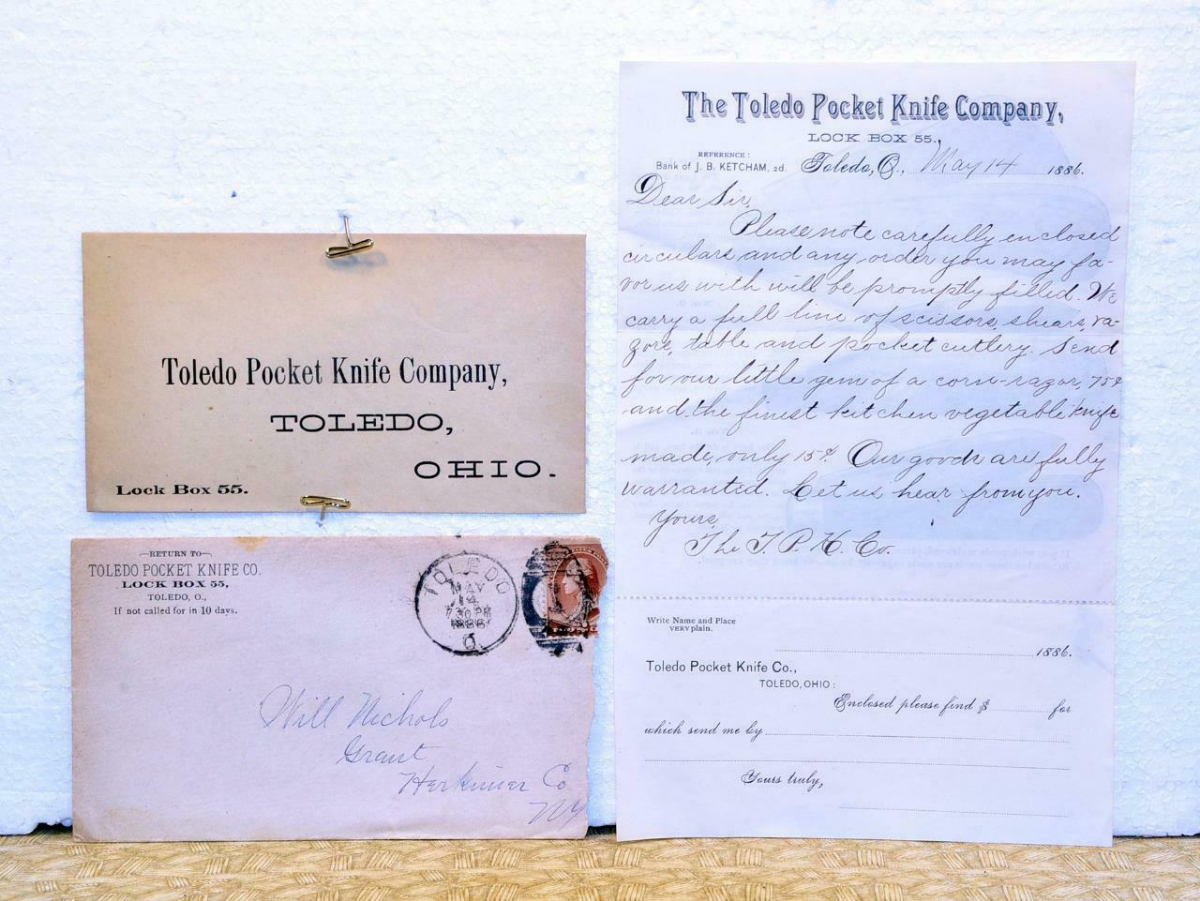 Toledo Pocket Knife Company,
TOLEDO,
OHIO.
Lock Box 55.
RETURN TO
TOLEDO POCKET KNIFE CO.
LOCK BOX 55,
TOLEDO, O.,
If not called for in 10 days.
TOLEDO
MAY
14
7 30 PM
1886
O.
Will Nichols
Grant
Herkimer Co
NY
The Toledo Pocket Knife Company,
LOCK BOX 55.,
REFERENCE:
Bank of J. B. KETCHAM, 2d. Toledo, O., May 14 1886.
Dear Sir,
Please note carefully enclosed
circulars and any order you may fa-
vor us with will be promptly filled. We
carry a full line of scissors, shears, ra-
zors, table and pocket cutlery. Send
for our little gem of a corn-razor, 75¢
and the finest kitchen vegetable knife
made, only 15¢ Our goods are fully
warranted. Let us hear from you.
Yours,
The T. P. K. Co.
Write Name and Place
VERY plain.
1886.
Toledo Pocket Knife Co.,
TOLEDO, OHIO:
Enclosed please find $ for
which send me by
Yours truly,